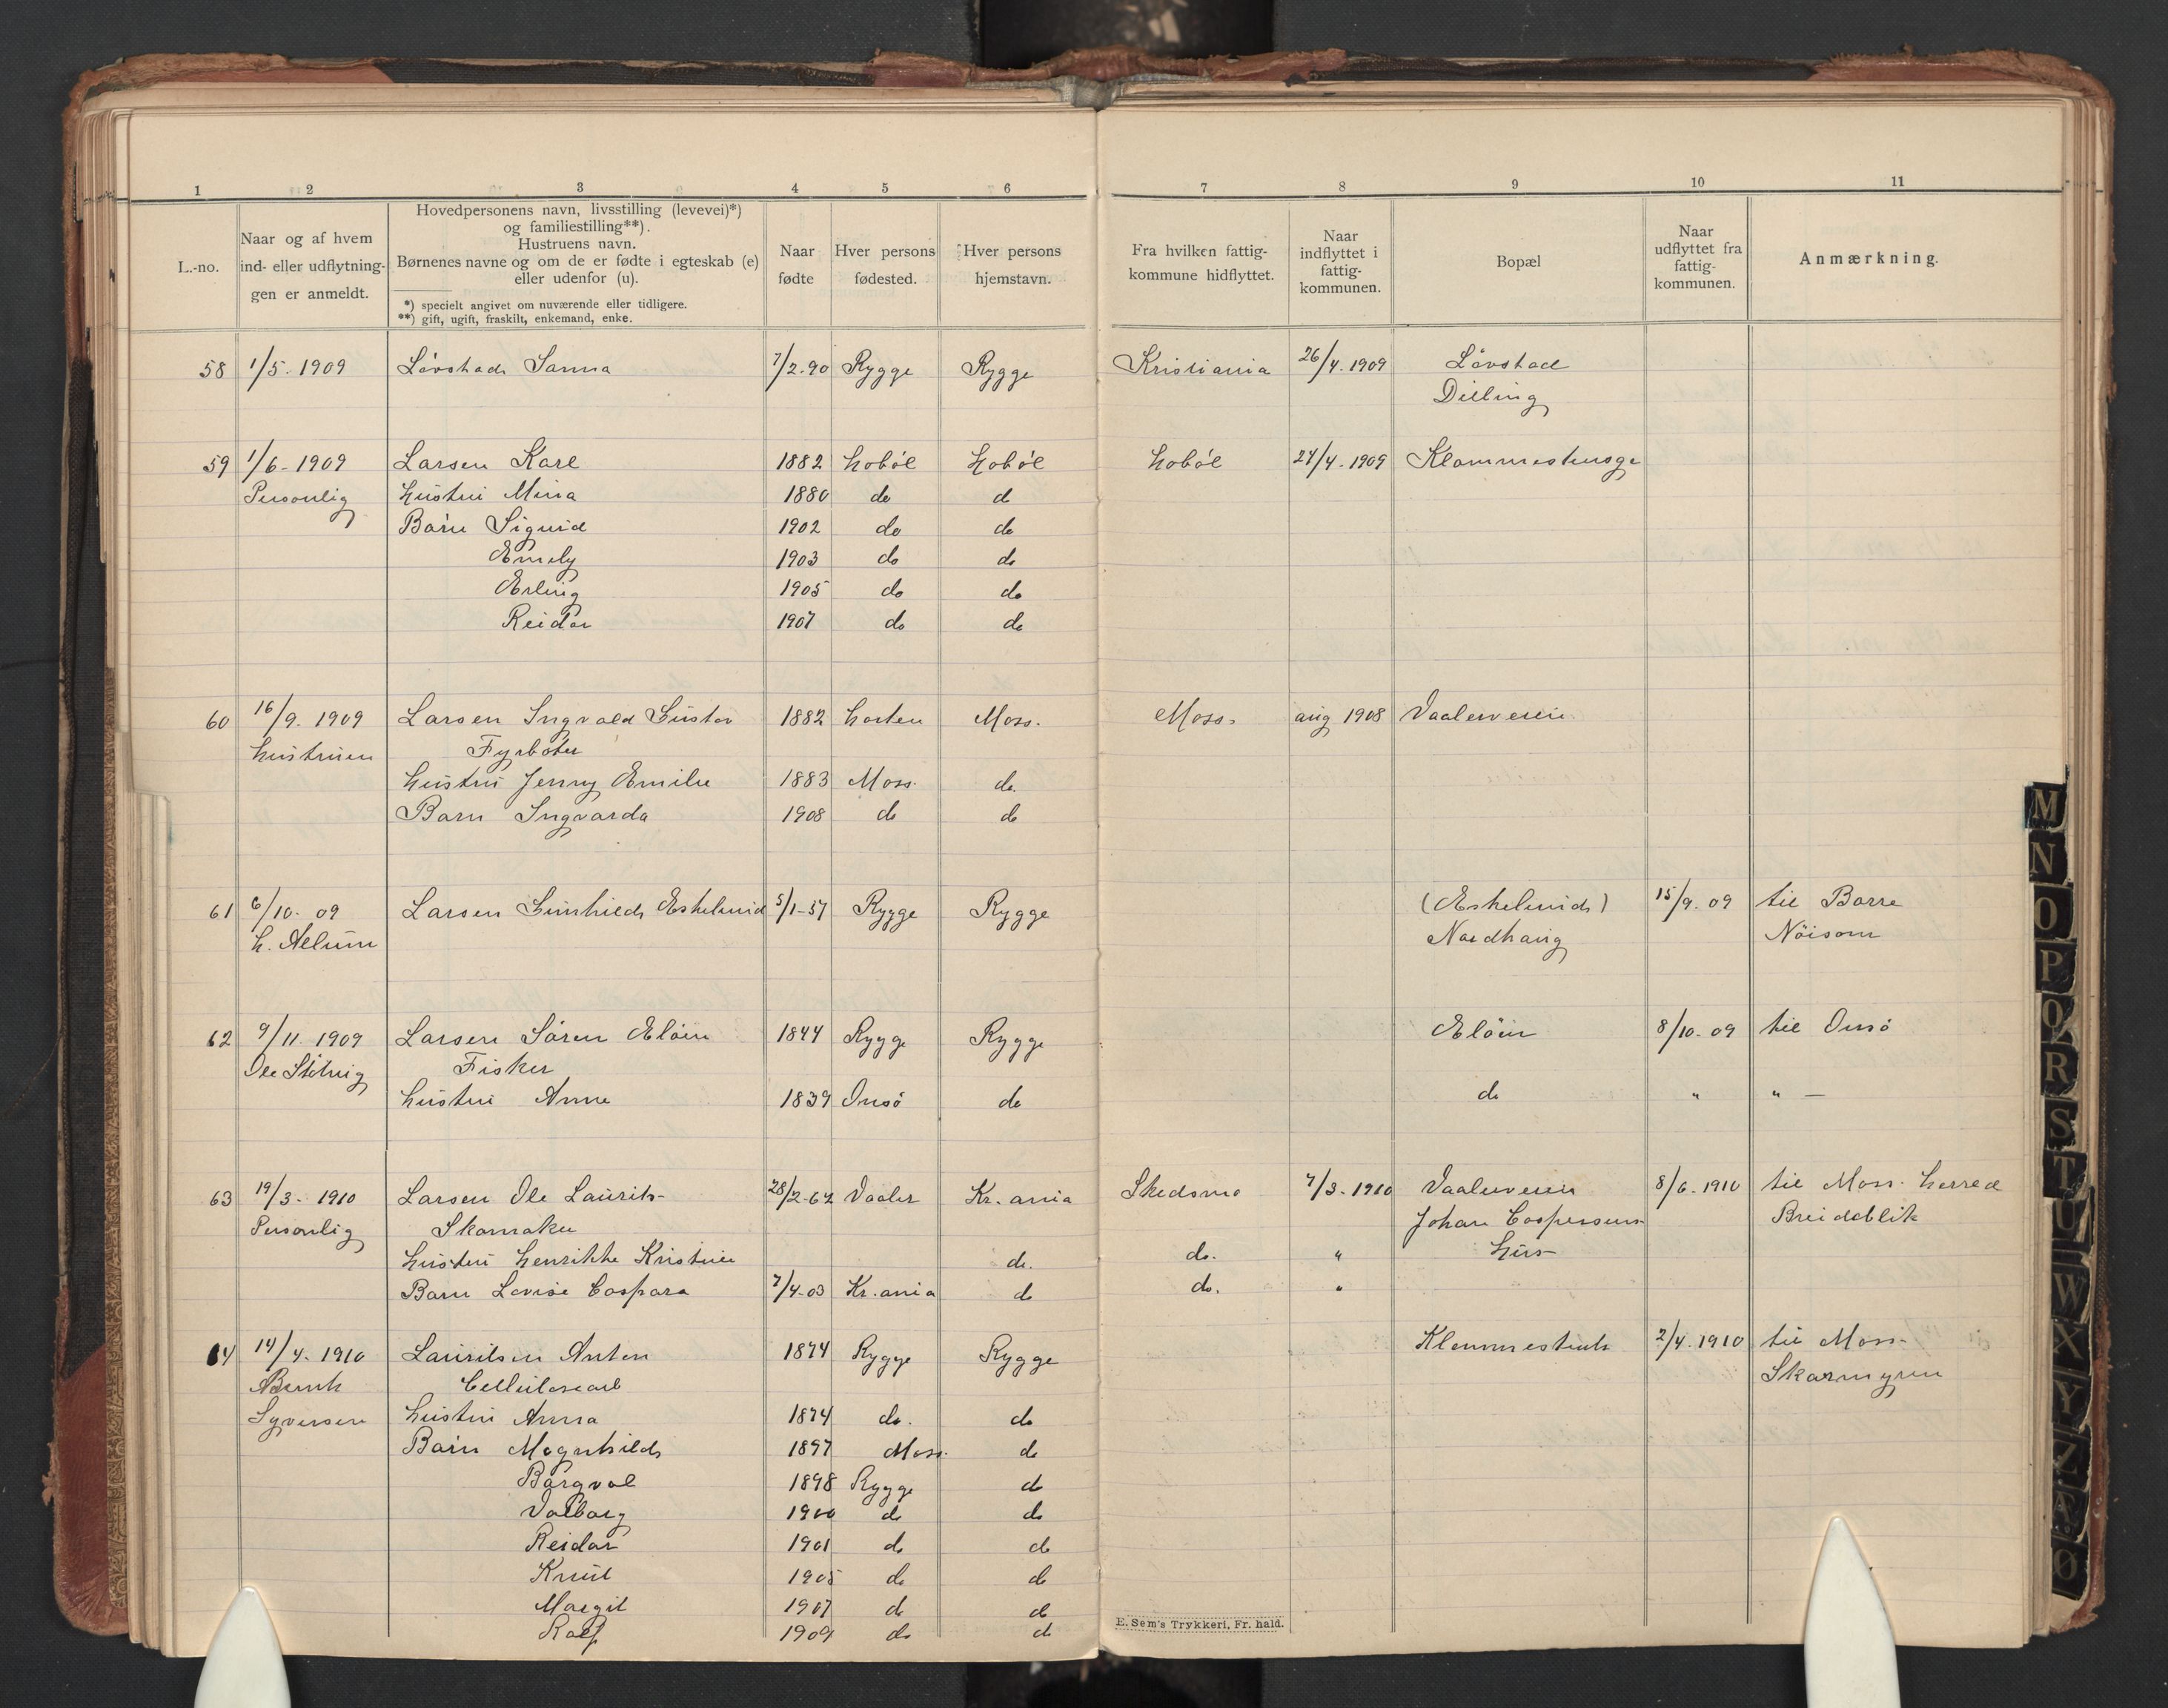 1 2 3 4 5 6 7 8 9 10 11
L.-no.
Naar og af hvem
ind- eller udflytnin-
gen er anmeldt.
Hovedpersonens navn, livsstilling (levevei)*)
og familiestilling**).
Hustruens navn.
Børnenes navne og om de er fødte i egteskab (e)
eller udenfor (u).
*) specielt angivet om nuværende eller tidligere.
**) gift, ugift, fraskilt, enkemand, enke.
Naar
fødte
Hver persons
fødested.
Hver persons
hjemstavn.
Fra hvilken fattig-
kommune hidflyttet.
Naar
indflyttet i
fattig-
kommunen.
Bopæl
Naar
udflyttet fra
fattig-
kommunen.
Anmærkning.
58 1/5. 1909 Lövstad Sanna 7/2-90 Rygge Rygge Kristiania 26/4. 1909 Lövstad
Dilling
59 1/6- 1909 Larsen Karl 1882 Hoböl Hoböl Hoböl 24/4. 1909
Personlig Hustru Mina 1880 do d
Börn Sigurd 1902 do do
Emely 1903 do do
Erling 1905 do do
Reidar 1907 do do
60 16/9. 1909 Larsen Ingvald Gustav 1882 Horten Moss. Moss. aug 1908 Vaalerveien
Hustruen Fyrböter
Hustru Jenny Emilie 1883 Moss. do.
Barn Ingvarda 1908 do do
61 6/10. 09 Larsen Gunhild Eskelund 5/1-57 Rygge Rygge (Eskelund) 15/9. 09 til Borre
Nordhaug Nöisom
62 9/11. 1909 Larsen Sören Elöen 1844 Rygge Rygge Elöen 8/10. 09 til Onsö
Ole Fisker
Hustru Anne 1839 Onsö do do " " —
63 19/3- 1910 Larsen Ole Laurits- 28/2-62 Vaaler Kr.ania Skedsmo 7/3-1910 Vaalerveien 8/6. 1910 til Moss. Herred
Personlig Skomaker Johan Caspersens Breidablik
Hustru Henrikke Kristine do. do. " Hus-
Barn Lovise Caspara 7/4-03 Kr.ania do do. "
64 14/4. 1910 Lauritsen Anton 1874 Rygge Rygge 2/4. 1910 til Moss-
Bernh Cellulosearb Skarmyren
Syversen Hustru Anna 1874 do. do
Börn Magnhild 1897 Moss. do
Borgval 1898 Rygge do
Valborg 1900 do do
Reidar 1901 do do
Knut 1905 do do
Margit 1907 do do
Ralf 1909 do do
E. Sem's Trykkeri, Fr. hald.
M
N
O
P
Q
R
S
T
U
W
X
Y
Z
Æ
Ø